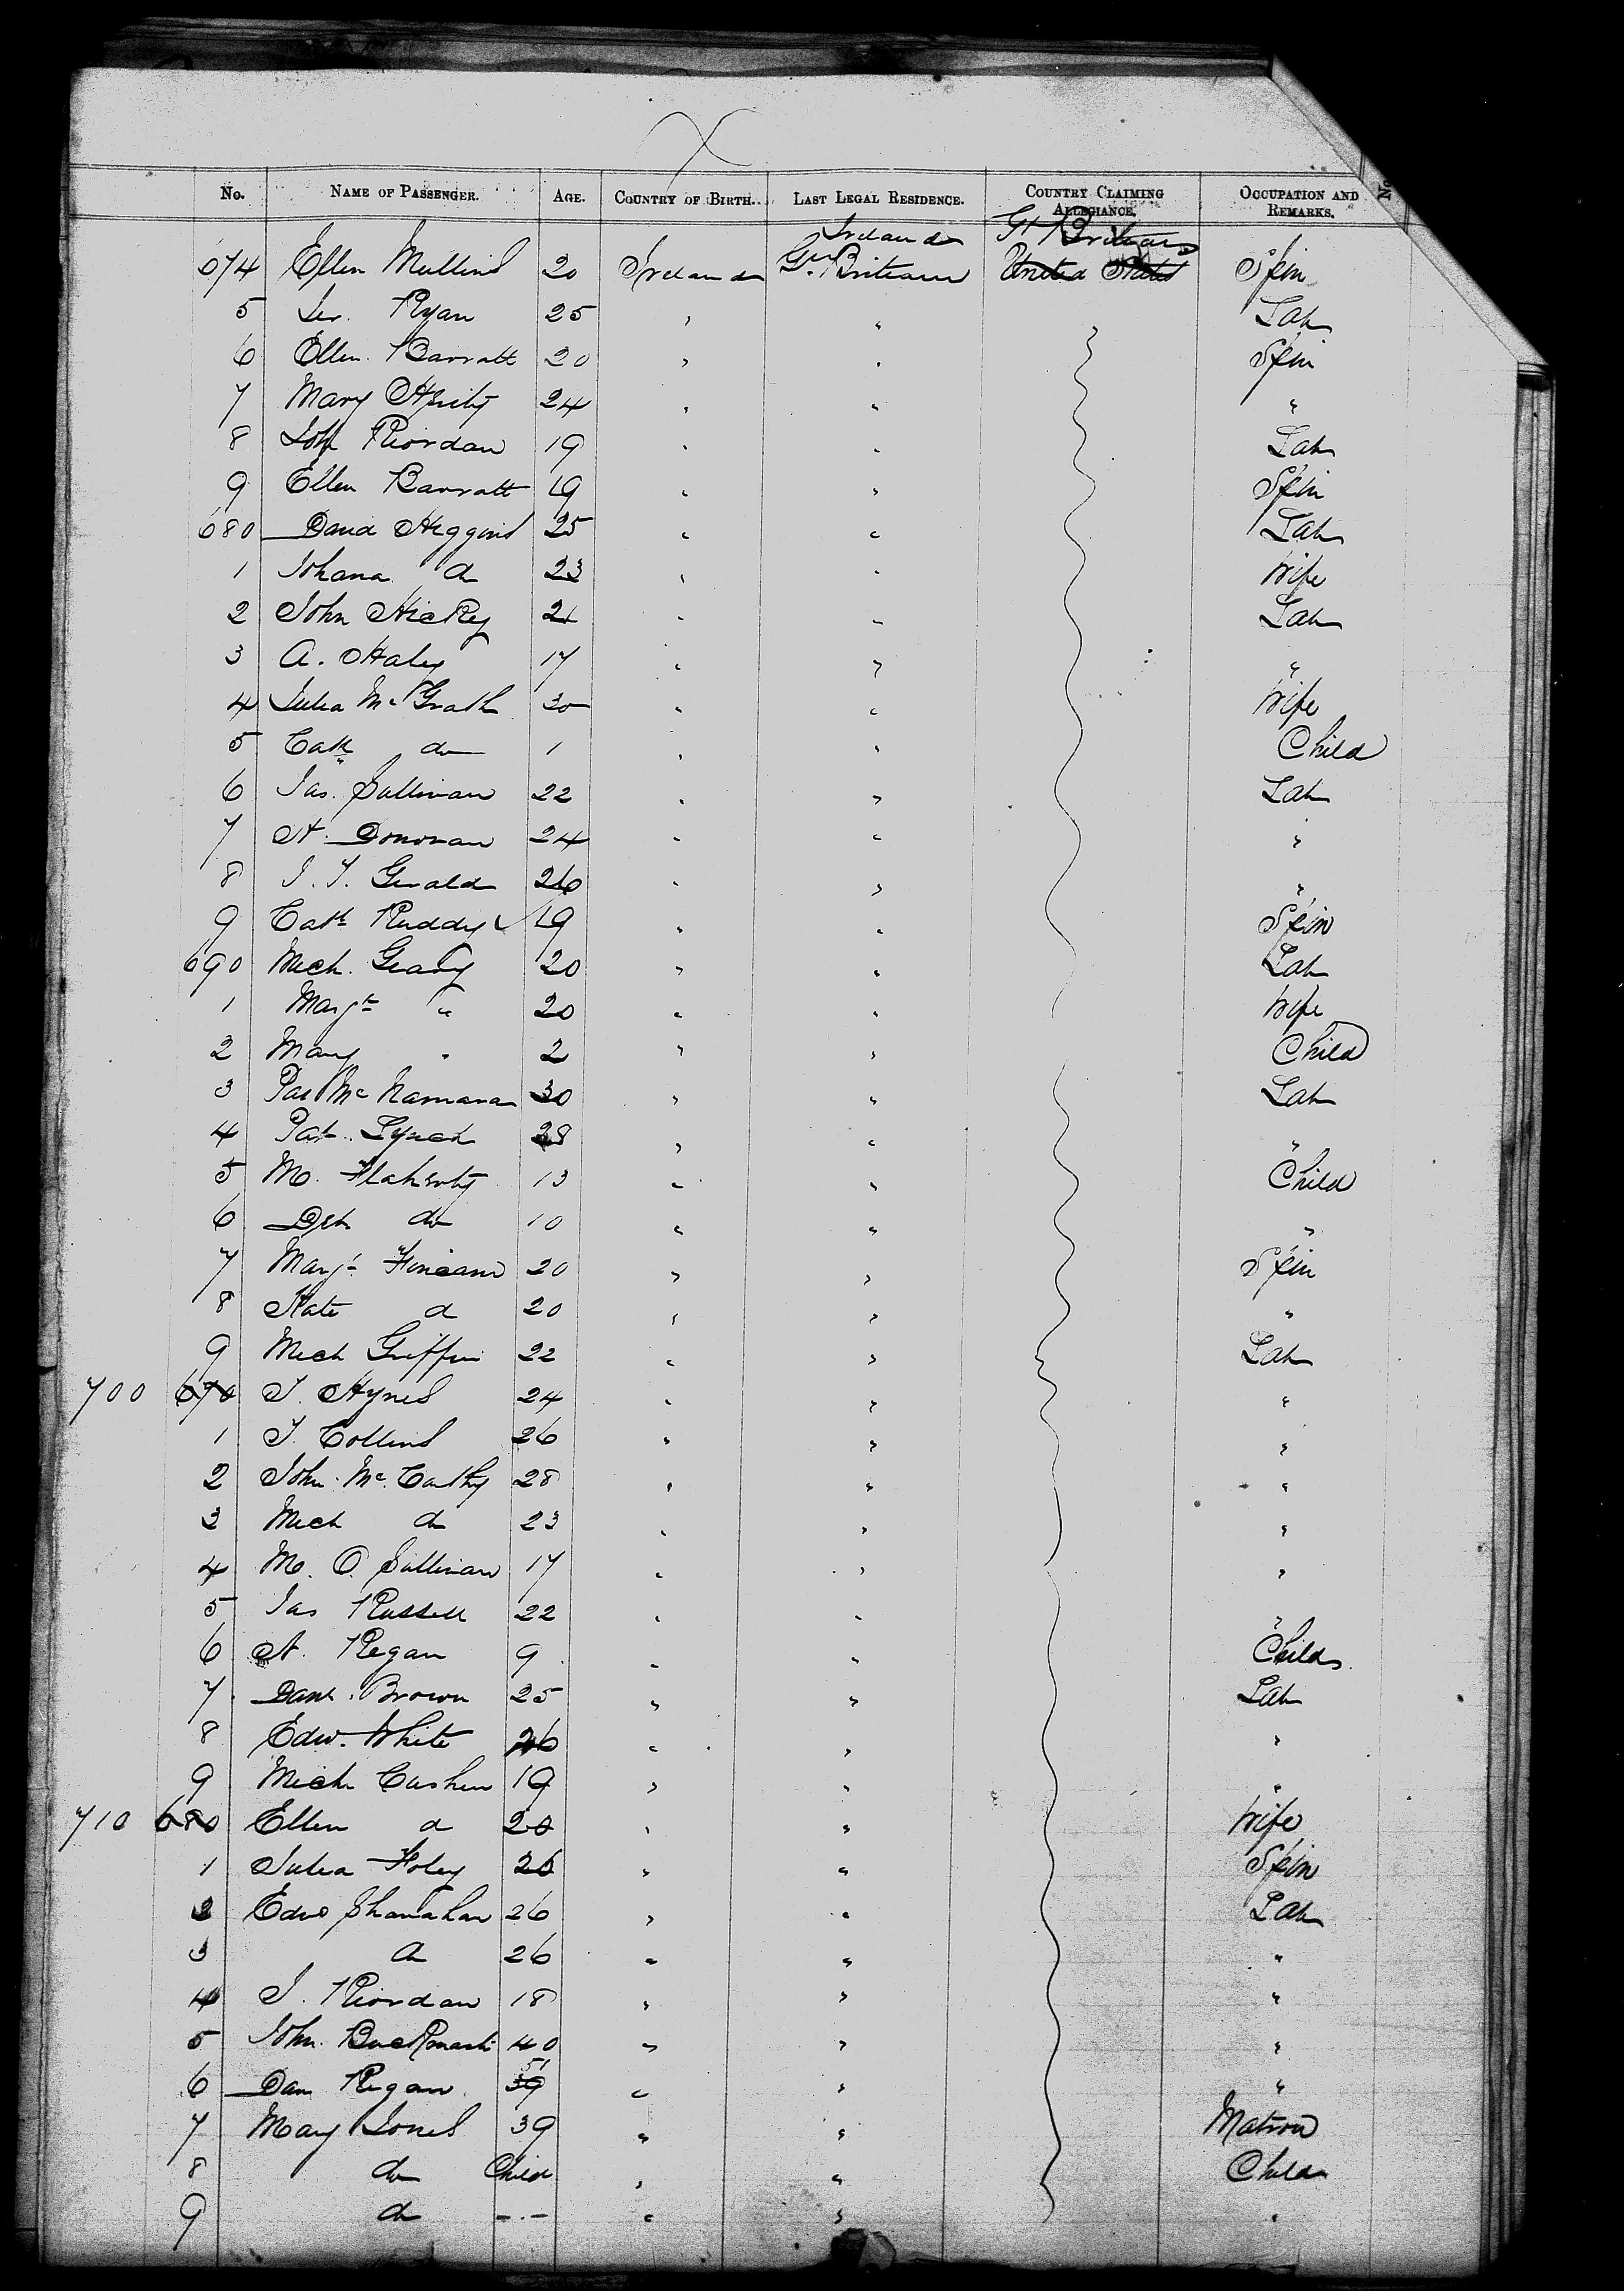 No. NAME OF PASSENGER. AGE. COUNTRY OF BIRTH. LAST LEGAL RESIDENCE. COUNTRY CLAIMING ALLEGIANCE. OCCUPATION AND REMARKS. No
Ireland Gt Britain
674 Ellen Mullins 20 Ireland Gt Britain United States Spin
5 Jer. Ryan 25 " " Lab
6 Ellen Barratt 20 " " Spin
7 Mary 24 " " "
8 Joh Riordan 19 " " Lab
9 Ellen Barratt 19 " " Spin
680 David Higgins 25 " " Lab
1 Johana do 23 " " Wife
2 John Hickey 21 " " Lab
3 A. Haley 17 " " "
4 Julia McGrath 30 " " Wife
5 Cath do 1 " " Child
6 Jas. Sullivan 22 " " Lab
7 H. Donovan 24 " " "
8 J. F. Gerald 26 " " "
9 Cath Ruddy 19 " " Spin
690 Mich. Geary 20 " " Lab
1 Margt " 20 " " Wife
2 Mary " 2 " " Child
3 Pat McNamara 30 " " Lab
4 Pat. Lynch 28 " " "
5 M. Flaherty 13 " " Child
6 do 10 " " "
7 Margt 20 " " Spin
8 Kate do 20 " " "
9 Mich Griffin 22 " " Lab
700 690 J. Hynes 24 " " "
1 T. Collins 26 " " "
2 John McCarthy 28 " " "
3 Mich do 23 " " "
4 M. O Sullivan 17 " " "
5 Jas Russell 22 " " "
6 Regan 9 " " Child
7 Danl. Brown 25 " " Lab
8 Edw. White 26 " " "
9 Mich Cashen 19 " " "
710 680 Ellen do 20 " " Wife
1 Julia Foley 26 " " Spin
2 Edwd Shanahan 26 " " Lab
3 do 26 " " "
4 J. Riordan 18 " " "
5 John 40 " " "
6 Dan Regan 39 " " "
7 Mary Jones 39 " " Matron
8 do Child " " Child
9 do -.- " " "